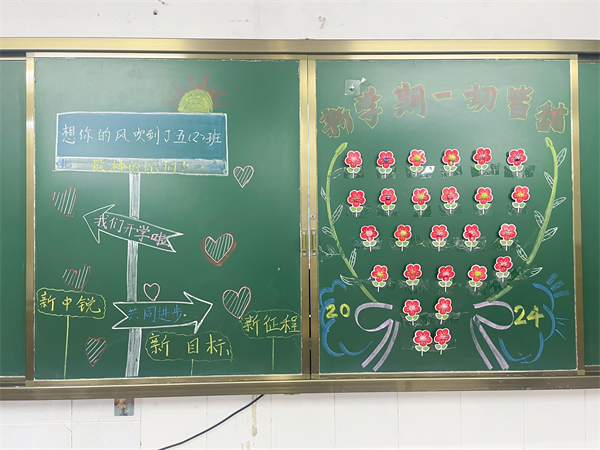 想你的风吹到了五(2)班
我们开学啦
共同进步
新中锐
新目标
新征程
新学期一切皆甜
20 24